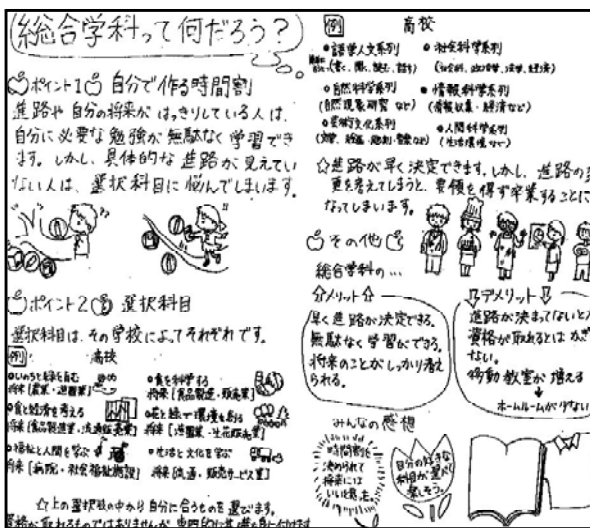 総合学科って何だろう?
ポイント1 自分で作る時間割
進路や自分の将来が はっきりしている人は、
自分に必要な勉強が無駄なく学習でき
ます。しかし、具体的な進路が見えてい
ない人は、選択科目に悩んでしまいます。
ポイント2 選択科目
選択科目は、その学校によってそれぞれです。
例 高校
●いのちと緑を育む
将来[農業・造園業]
●食を科学する
将来[食品製造・販売業]
●食と経済を考える
将来[食品製造業・流通販売業]
●花と緑で環境を創る
将来[造園業・生花販売業]
●福祉と人間を学ぶ
将来[病院・社会福祉施設]
●生活と文化を学ぶ
将来[流通・販売サービス業]
☆上の選択肢の中から自分に合うものを選びます。
資格が取れるものではありませんが、専門的な基礎を身に付けます
例 高校
●語学人文系列
(書く、聞く、読む、話す)
●社会科学系列
●自然科学系列
(自然現象研究 など)
●情報科学系列
(情報収集・経済など)
●芸術文化系列
●人間科学系列
(生活環境 など)
☆進路が早く決定できます。しかし、進路の変
更を考えてしまうと、要領を得ず卒業することに
なってしまいます。
その他
総合学科の…
☆メリット☆
早く進路が決定できる。
無駄なく学習ができる。
将来のことがしっかり考え
られる。
デメリット
進路が決まってないと
資格が取れるとは かぎ
らない。
移動教室が 増える
→ホームルームが少ない
みんなの感想
時間割を
決められて
将来には
いいと思った。
自分の好きな
科目が選べて
楽しそう。